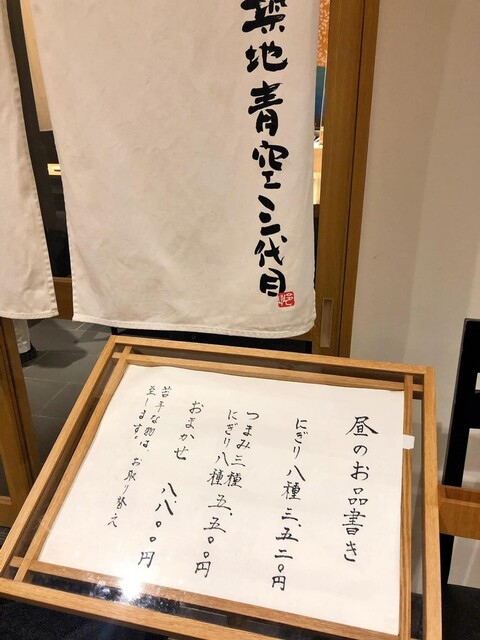 築地青空三代目
昼のお品書き
にぎり八種 三、五二〇円
つまみ三種
にぎり八種 五、五〇〇円
おまかせ 八八〇〇円
苦手な物は、お取り替え
至します。